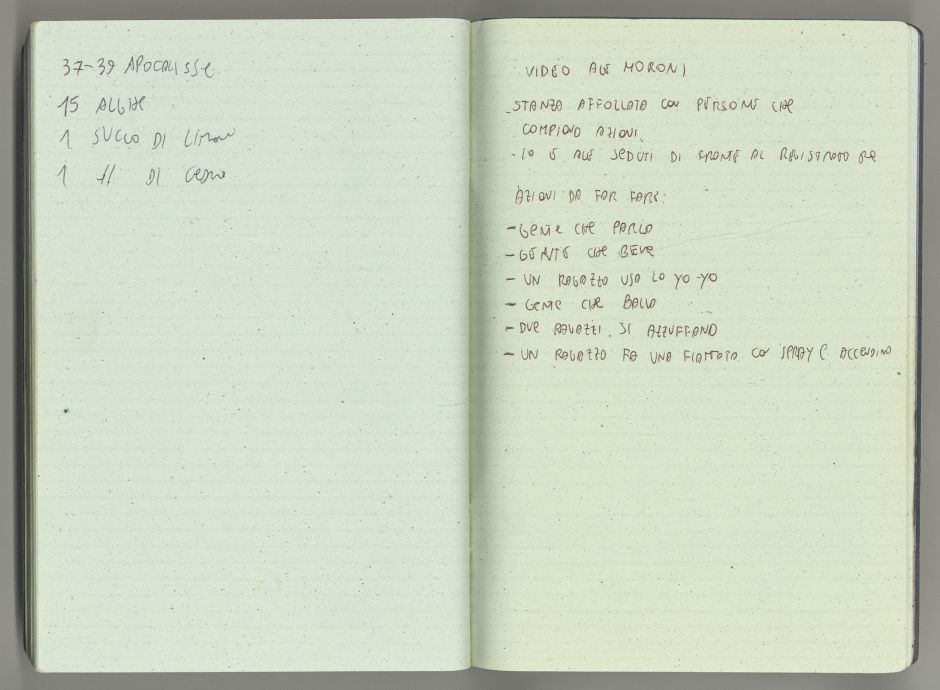 37-39 APOCALISSE
15 ALGHE
1 SUCCO DI LIMONE
1 // DI CEDRO
VIDEO ALE MORONI
STANZA AFFOLLATA CON PERSONE CHE
COMPIONO AZIONI.
- IO E ALE SEDUTI DI FRONTE AL REGISTRATORE
AZIONI DA FAR FARE:
- GENTE CHE PARLA
- GENTE CHE BEVE
- UN RAGAZZO USA LO YO-YO
- GENTE CHE BALLA
- DUE RAGAZZI SI AZZUFFANO
- UN RAGAZZO FA UNA FIAMMATA CON SPRAY E ACCENDINO